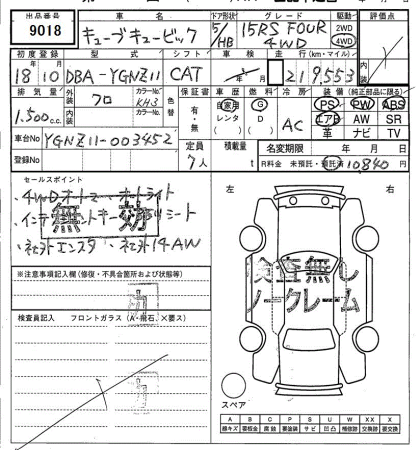 出品番号 車名 ドア形状 グレード 駆動 評価点
9018 キューブキュービック 5/HB 15RS FOUR 4WD 2WD 4WD
初度登録 型式 シフト 車検 走行(km・マイル) 内装
18 10 DBA-YGNZ11 CAT 219,553
排気量 外装 カラーNo. 色替 保証書 車歴 燃料 冷房 装備(純正部品に限る)
1.500c.c. クロ KH3 有・無 自家用 G AC PS PW ABS
内装 カラーNo. レンタ D エアB AW SR
革 ナビ TV
車台No YGNZ11-003452 定員 積載量 名変期限 年 月 日
登録No 7人 t R料金 未預託・預託済 10840円
セールスポイント
・4WDオートマ・オートライト
無効
・社外エンスタ・社外14AW
左 右
検査無し
ノークレーム
※注意事項記入欄(修復・不具合箇所および状態等)
検査員記入 フロントガラス(A・飛石、×要ス)
スペア
A B C P S U W X XX
線キズ 要板金 腐蝕 要塗装 サビ 凹凸 補修跡 要交換 交換跡